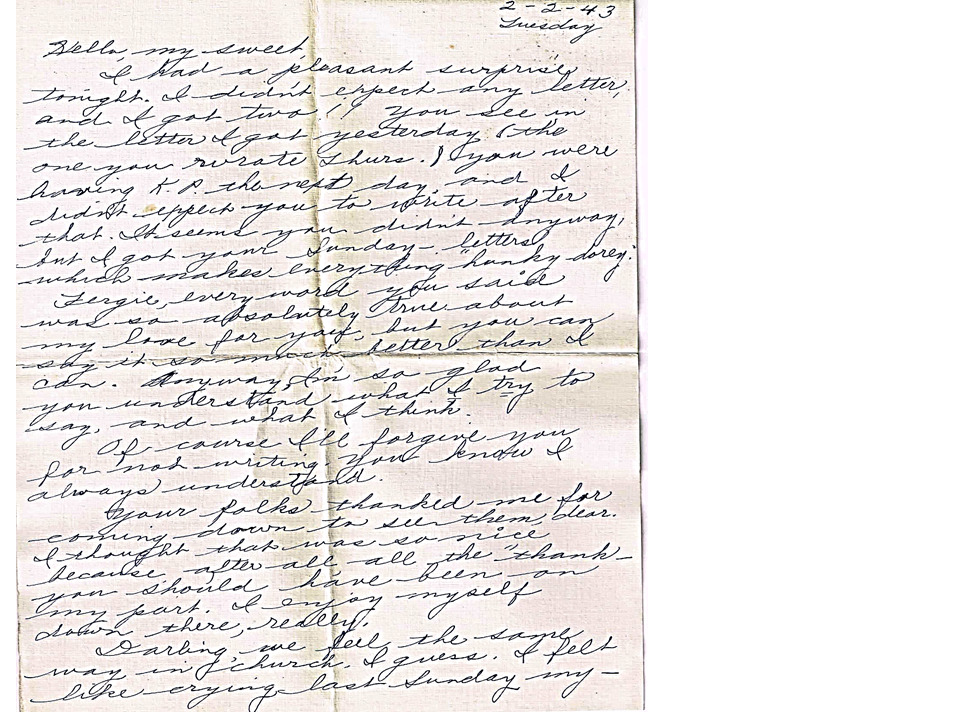 2-2-43
Tuesday
Hello, my sweet,
I had a pleasant surprise
tonight. I didn't expect any letter,
and I got two!! You see in
the letter I got yesterday (the
one you wrote Thurs.) you were
having K.P. the next day, and I
didn't expect you to write after
that. It seems you didn't anyway,
but I got your Sunday letters
which makes everything "hunky-dorey".
Fergie, every word you said
was so absolutely true about
my love for you, but you can
say it so much better than I
can. Anyway, I'm so glad
you understand what I try to
say, and what I think.
Of course I'll forgive you
for not writing. You know I
always understand.
Your folks thanked me for
coming down to see them, dear.
I thought that was so nice
because after all all the "thank-
you should have been on
my part. I enjoy myself
down there, really.
Darling we feel the same
way in church, I guess. I felt
like crying last Sunday my-